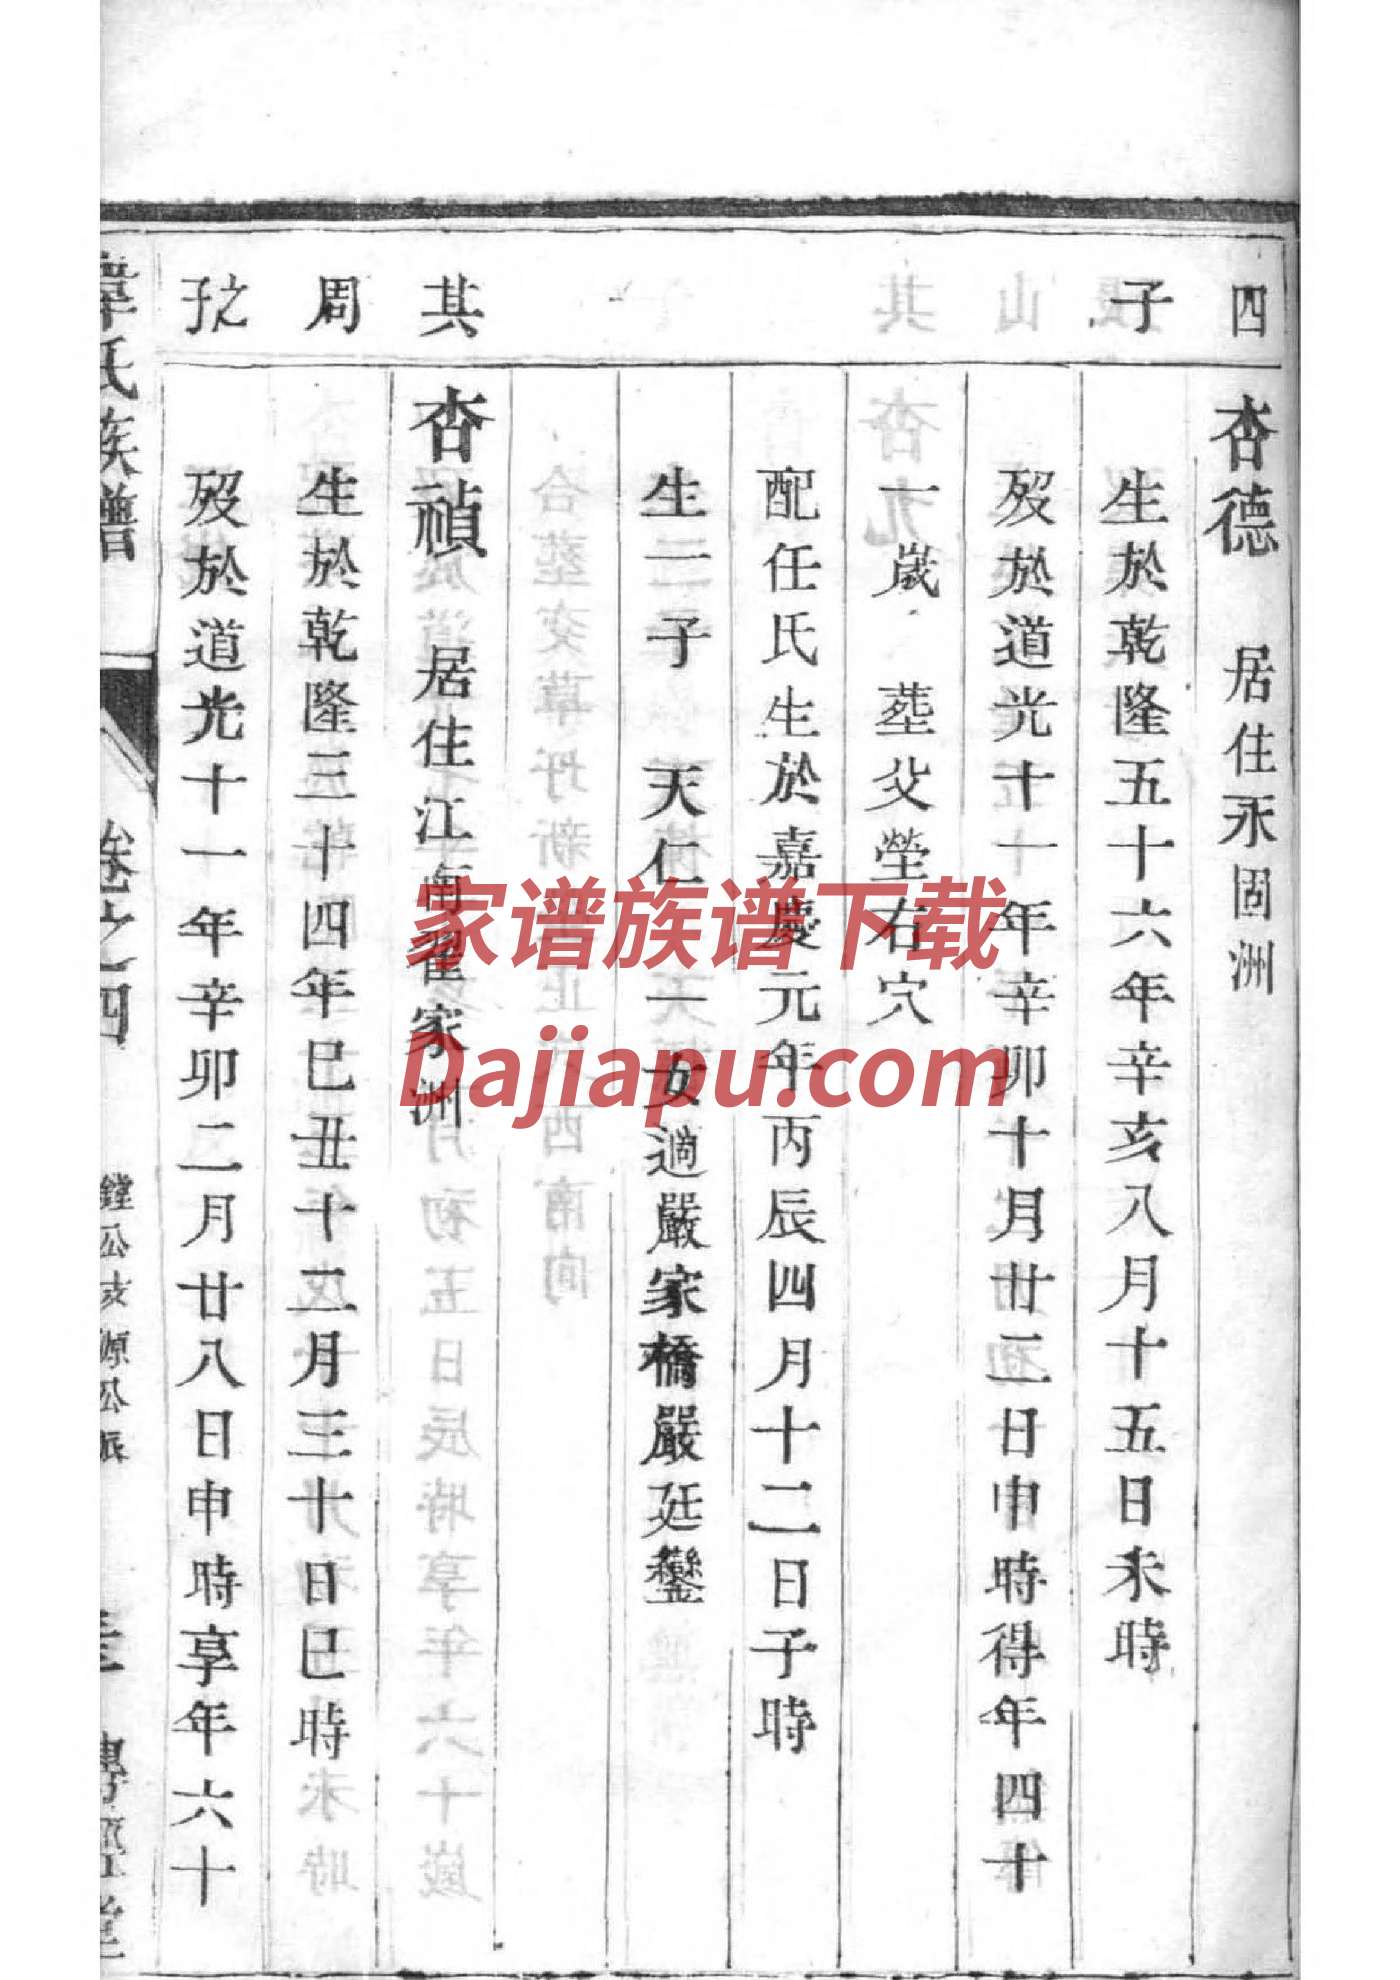 四子 其周孜
杏德 居住永固洲
生於乾隆五十六年辛亥八月十五日未時
歿於道光十一年辛卯十月廿二日申時得年四十
一歲 葬父塋右穴
配任氏生於嘉慶元年丙辰四月十二日子時
生二子 天仁 一女適嚴家橋嚴廷鑾
杏禎 居住江南翟家洲
生於乾隆三十四年巳丑十二月三十日巳時
歿於道光十一年辛卯二月廿八日申時享年六十
韋氏族譜 卷之四 鏜公支源公派 傳經堂
家谱族谱下载
Dajiapu.com